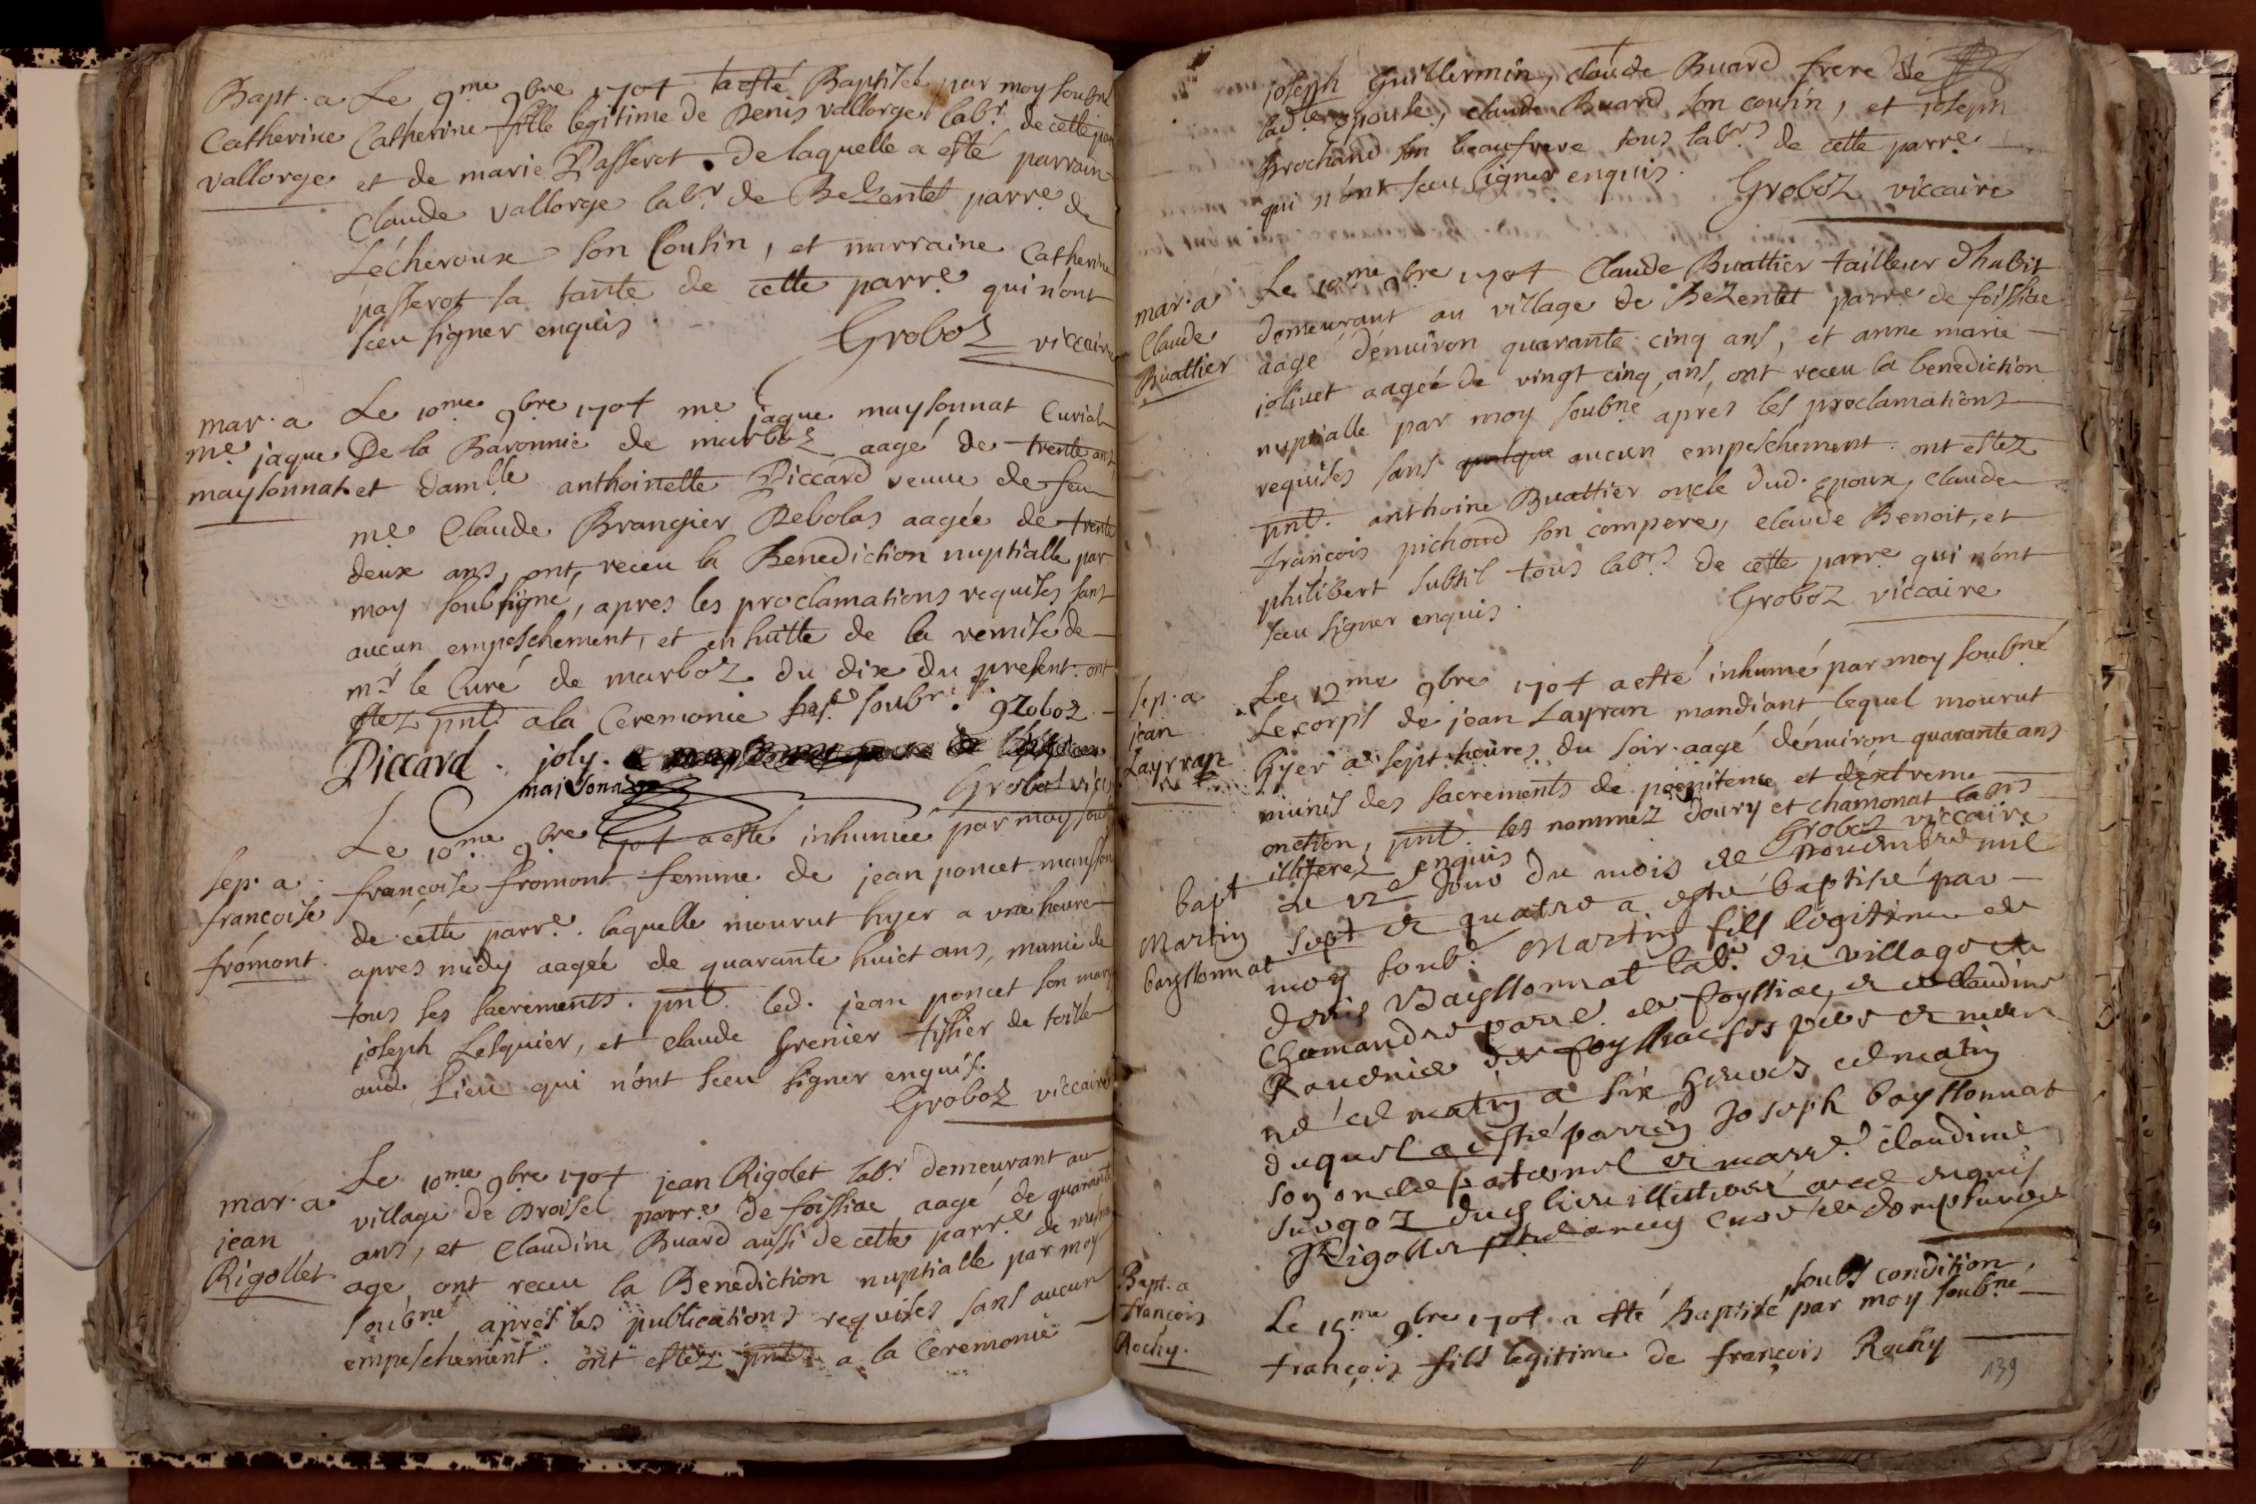 Bapt. a
Catherine
vallorge
Le 9me 9bre 1704 a esté Baptisée par moy soubné
Catherine fille legitime de Denis vallorge labr de cette parre
et de marie Passerot. de laquelle a esté parrain
Claude vallorge labr de Bezentet parre de
Lécheroux son Cousin, et marraine Catherine
passerot sa tante de cette parre qui n'ont
sceu signer enquis.
Groboz viccaire
mar. a
me jaque
maysonnat
Le 10me 9bre 1704 me jaque maysonnat Curial
De la Baronnie de marboz aagé de trente ans
et damlle anthoinette Piccard veuve de feu
me Claude Brangier Debolas aagée de trente
deux ans, ont receu la Benediction nuptialle par
moy soubsigné, apres les proclamations requises sans
aucun empeschement, et en suitte de la remise de
mr le Curé de marboz du dix du present. ont
estez pnts a la Ceremonie soubr. Groboz
Piccard. joly.
maisonnat
Groboz vicc
sep. a
francoise
fromont
Le 10me 9bre 1704 a esté inhumée par moy soub
françoise fromont femme de jean poncet
de cette parre. laquelle mourut hyer a une heure
apres midy aagée de quarante huict ans, munie de
tous ses sacrements. pnt. led. jean poncet son mary
joseph Lesquier, et claude Grenier tissier de toille
aud. Lieu qui n'ont sceu signer enquis.
Groboz viccaire
mar. a
jean
Rigollet
Le 10me 9bre 1704 jean Rigolet labr demeurant au
village de Broisel parre de foissiac aagé de quarante
ans, et Claudine Buard aussi de cette parre de mesme
age ont receu la Benediction nuptialle par moy
soubné apres les publications requises sans aucun
empeschement. ont estez pnts a la Ceremonie
joseph Guillermin, claude Buard frere de
lade epouse, claude Buard son cousin, et joseph
Brochand son beaufrere tous labrs de cette parre
qui n'ont sceu signer enquis.
Groboz viccaire
mar. a
Claude
Buattier
Le 10me 9bre 1704 Claude Buattier tailleur d'habit
demeurant au village de Bezentet parre de foissiac
aagé d'enuiron quarante cinq ans, et anne marie
joliuet aageé de vingt cinq ans, ont receu la benediction
nuptialle par moy soubné apres les proclamations
requises sans quelque aucun empeschement. ont estez
pnt. anthoine Buattier oncle dud. epoux, claude
françois pichoud son compere, claude Benoit, et
philibert subtil tous labrs de cette parre qui n'ont
sceu signer enquis.
Groboz viccaire
sep. a
jean
Layran
Le 12me 9bre 1704 a esté inhumé par moy soubné
Le corps de jean Layran mandiant lequel mourut
hyer a sept heures du soir. aagé d'enuiron quarante ans
munis des sacrements de poenitence et d'extreme
onction, pnt. les nommez Doury et chamonat labrs
illiterez enquis
Groboz viccaire
bapt
Martin
bayssonnat
Le 12e Jour du mois de nouembre mil
sept et quatre a esté baptisé par
moy soub. Martin fils legitime de
Denis Bayssonnat labr. du village de
Chamandre parre. de foyssiac, et Claudine
Raudnier de foyssiac ses pere et mere
né ce matin a six heures ce matin
duquel a esté parrein Joseph bayssonnat
son oncle paternel et marre. claudine
du lieu illitteré enquis
Rigollet
Bapt. a
francois
Rochy.
Le 15me 9bre 1704 a esté Baptisé soubs condition, par moy soubné
françois fils legitime de francois Rochy
139